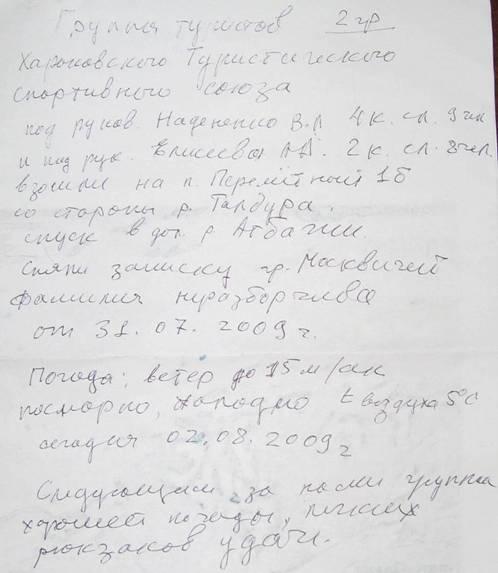 Группа туристов 2 гр
Харьковского Туристического
спортивного союза
под руков. Надененко В.Л 4 к. сл. 9 чел
и под рук. Елисеева А.А. 2 к. сл. 8 чел.
взошли на п. Перемётный 1б
со стороны р. Талдура.
спуск в дол. р Атбажи.
сняли записку гр. Москвичей
фамилия неразборчива
от 31.07.2009 г.
Погода: ветер до 15 м/сек
пасмурно, холодно t воздуха 5°C
сегодня 02.08.2009 г
Следующим за нами группам
хорошей погоды, легких
рюкзаков удачи.